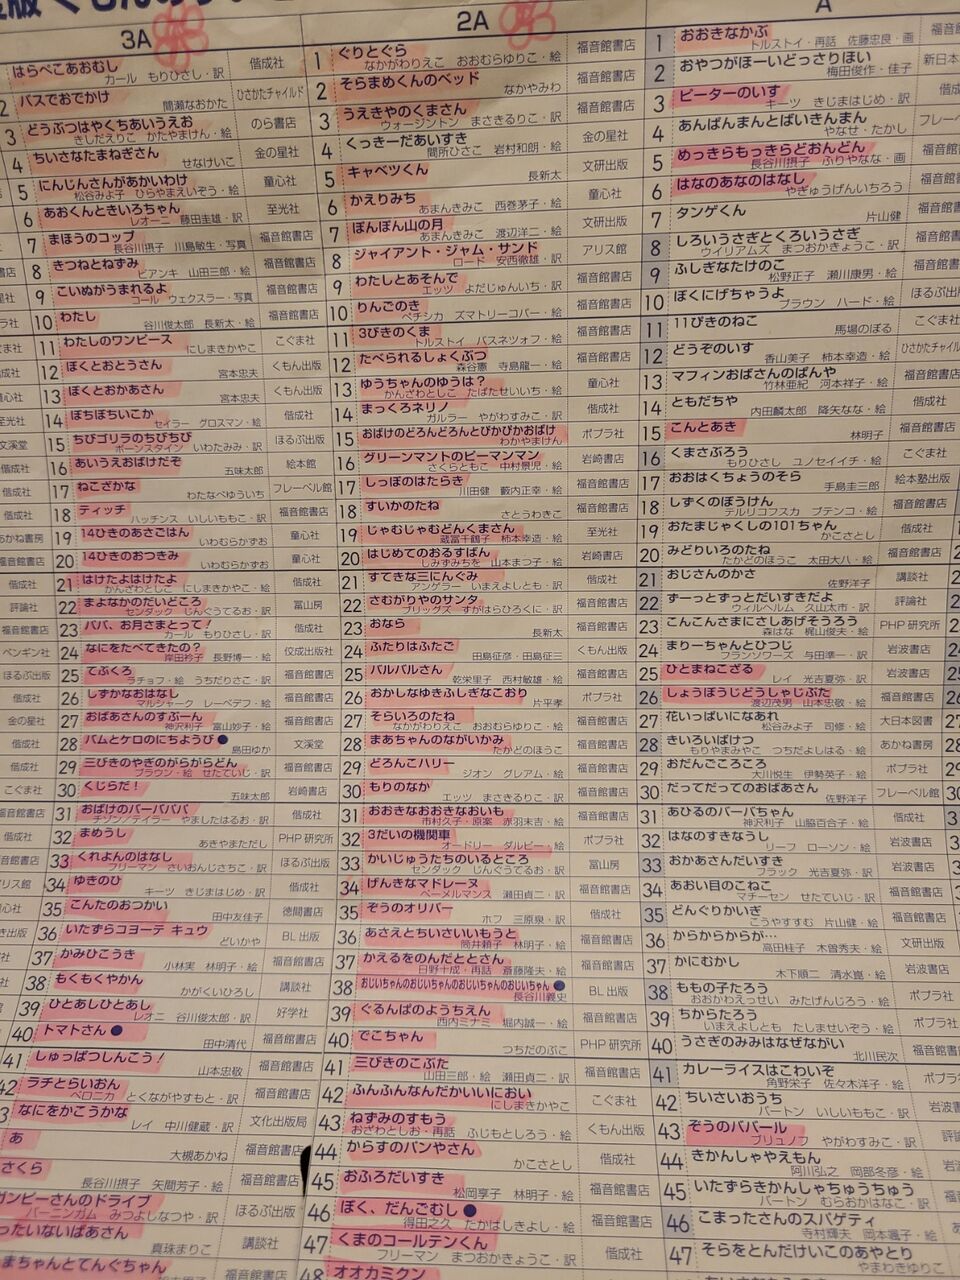 3A
はらぺこあおむし
カール もりひさし・訳 偕成社
2 バスでおでかけ
間瀬なおかた ひさかたチャイルド
3 どうぶつはやくちあいうえお
きしだえりこ かたやまけん・絵 のら書店
4 ちいさなたまねぎさん
せなけいこ 金の星社
5 にんじんさんがあかいわけ
松谷みよ子 ひらやまえいぞう・絵 童心社
6 あおくんときいろちゃん
レオーニ 藤田圭雄・訳 至光社
7 まほうのコップ
長谷川摂子 川島敏生・写真 福音館書店
8 きつねとねずみ
ビアンキ 山田三郎・絵 福音館書店
9 こいぬがうまれるよ
コール ウェクスラー・写真 福音館書店
10 わたし
谷川俊太郎 長新太・絵 福音館書店
11 わたしのワンピース
にしまきかやこ こぐま社
12 ぼくとおとうさん
宮本忠夫 くもん出版
13 ぼくとおかあさん
宮本忠夫 くもん出版
14 ぼちぼちいこか
セイラー グロスマン・絵 偕成社
15 ちびゴリラのちびちび
ボーンスタイン いわたみみ・訳 ほるぷ出版
16 あいうえおばけだぞ
五味太郎 絵本館
17 ねこざかな
わたなべゆういち フレーベル館
18 ティッチ
ハッチンス いしいももこ・訳 福音館書店
19 14ひきのあさごはん
いわむらかずお 童心社
20 14ひきのおつきみ
いわむらかずお 童心社
21 はけたよはけたよ
かんざわとしこ にしまきかやこ・絵 偕成社
22 まよなかのだいどころ
センダック じんぐうてるお・訳 冨山房
23 パパ、お月さまとって!
カール もりひさし・訳 偕成社
24 なにをたべてきたの?
岸田衿子 長野博一・絵 佼成出版社
25 てぶくろ
ラチョフ・絵 うちだりさこ・訳 福音館書店
26 しずかなおはなし
マルシャーク レーベデフ・絵 福音館書店
27 おばあさんのすぷーん
神沢利子 富山妙子・絵 福音館書店
28 バムとケロのにちようび ●
島田ゆか 文溪堂
29 三びきのやぎのがらがらどん
ブラウン・絵 せたていじ・訳 福音館書店
30 くじらだ!
五味太郎 岩崎書店
31 おばけのバーバパパ
チゾン/テイラー やましたはるお・訳 偕成社
32 まめうし
あきやまただし PHP研究所
33 くれよんのはなし
フリーマン さいおんじさちこ・訳 ほるぷ出版
34 ゆきのひ
キーツ きじまはじめ・訳 偕成社
35 こんたのおつかい
田中友佳子 徳間書店
36 いたずらコヨーテ キュウ
どいかや BL出版
37 かみひこうき
小林実 林明子・絵 福音館書店
38 もくもくやかん
かがくいひろし 講談社
39 ひとあしひとあし
レオニ 谷川俊太郎・訳 好学社
40 トマトさん ●
田中清代 福音館書店
41 しゅっぱつしんこう!
山本忠敬 福音館書店
42 ラチとらいおん
ベロニカ とくながやすもと・訳 福音館書店
3 なにをかこうかな
レイ 中川健蔵・訳 文化出版局
あ
大槻あかね 福音館書店
さくら
長谷川摂子 矢間芳子・絵 福音館書店
ガンピーさんのドライブ
バーニンガム みつよしなつや・訳 ほるぷ出版
ったいないばあさん
真珠まりこ 講談社
まちゃんとてんぐちゃん
2A
1 ぐりとぐら
なかがわりえこ おおむらゆりこ・絵 福音館書店
2 そらまめくんのベッド
なかやみわ 福音館書店
3 うえきやのくまさん
ウォージントン まさきるりこ・訳 福音館書店
4 くっきーだあいすき
間所ひさこ 岩村和朗・絵 金の星社
5 キャベツくん
長新太 文研出版
6 かえりみち
あまんきみこ 西巻茅子・絵 童心社
7 ぽんぽん山の月
あまんきみこ 渡辺洋二・絵 文研出版
8 ジャイアント・ジャム・サンド
ロード 安西徹雄・訳 アリス館
9 わたしとあそんで
エッツ よだじゅんいち・訳 福音館書店
10 りんごのき
ペチシカ ズマトリーコバー・絵 福音館書店
11 3びきのくま
トルストイ バスネツォフ・絵 福音館書店
12 たべられるしょくぶつ
森谷憲 寺島龍一・絵 福音館書店
13 ゆうちゃんのゆうは?
かんざわとしこ たばたせいいち・絵 童心社
14 まっくろネリノ
ガルラー やがわすみこ・訳 偕成社
15 おばけのどろんどろんとぴかぴかおばけ
わかやまけん ポプラ社
16 グリーンマントのピーマンマン
さくらともこ 中村景児・絵 岩崎書店
17 しっぽのはたらき
川田健 藪内正幸・絵 福音館書店
18 すいかのたね
さとうわきこ 福音館書店
19 じゃむじゃむどんくまさん
蔵冨千鶴子 柿本幸造・絵 至光社
20 はじめてのおるすばん
しみずみちを 山本まつ子・絵 岩崎書店
21 すてきな三にんぐみ
アンゲラー いまえよしとも・訳 偕成社
22 さむがりやのサンタ
ブリッグズ すがはらひろくに・訳 福音館書店
23 おなら
長新太 福音館書店
24 ふたりはふたご
田島征彦・田島征三 くもん出版
25 バルバルさん
乾栄里子 西村敏雄・絵 福音館書店
26 おかしなゆきふしぎなこおり
片平孝 ポプラ社
27 そらいろのたね
なかがわりえこ おおむらゆりこ・絵 福音館書店
28 まあちゃんのながいかみ
たかどのほうこ 福音館書店
29 どろんこハリー
ジオン グレアム・絵 福音館書店
30 もりのなか
エッツ まさきるりこ・訳 福音館書店
31 おおきなおおきなおいも
市村久子・原案 赤羽末吉・絵 福音館書店
32 3だいの機関車
オードリー ダルビー・絵 ポプラ社
33 かいじゅうたちのいるところ
センダック じんぐうてるお・訳 冨山房
34 げんきなマドレーヌ
ベーメルマンス 瀬田貞二・訳 福音館書店
35 ぞうのオリバー
ホフ 三原泉・訳 偕成社
36 あさえとちいさいいもうと
筒井頼子 林明子・絵 福音館書店
37 かえるをのんだととさん
日野十成・再話 斎藤隆夫・絵 福音館書店
38 おじいちゃんのおじいちゃんのおじいちゃんのおじいちゃん ●
長谷川義史 BL出版
39 ぐるんぱのようちえん
西内ミナミ 堀内誠一・絵 福音館書店
40 でこちゃん
つちだのぶこ PHP研究所
41 三びきのこぶた
山田三郎・絵 瀬田貞二・訳 福音館書店
42 ふんふんなんだかいいにおい
にしまきかやこ こぐま社
43 ねずみのすもう
おざわとしお・再話 ふじもとしろう・絵 くもん出版
44 からすのパンやさん
かこさとし 偕成社
45 おふろだいすき
松岡享子 林明子・絵 福音館書店
46 ぼく、だんごむし ●
得田之久 たかはしきよし・絵 福音館書店
47 くまのコールテンくん
フリーマン まつおかきょうこ・訳 偕成社
48 オオカミクン
A
1 おおきなかぶ
トルストイ・再話 佐藤忠良・画 福音館
2 おやつがほーいどっさりほい
梅田俊作・佳子 新日本
3 ピーターのいす
キーツ きじまはじめ・訳 偕成
4 あんぱんまんとばいきんまん
やなせ・たかし フレーベ
5 めっきらもっきらどおんどん
長谷川摂子 ふりやなな・画 福音館
6 はなのあなのはなし
やぎゅうげんいちろう 福音館書
7 タンゲくん
片山健 福音館書
8 しろいうさぎとくろいうさぎ
ウイリアムズ まつおかきょうこ・訳 福音館書
9 ふしぎなたけのこ
松野正子 瀬川康男・絵 福音館書
10 ぼくにげちゃうよ
ブラウン ハード・絵 ほるぷ出
11 11ぴきのねこ
馬場のぼる こぐま社
12 どうぞのいす
香山美子 柿本幸造・絵 ひさかたチャイル
13 マフィンおばさんのぱんや
竹林亜紀 河本祥子・絵 福音館書店
14 ともだちや
内田麟太郎 降矢なな・絵 偕成社
15 こんとあき
林明子 福音館書店
16 くまさぶろう
もりひさし ユノセイイチ・絵 こぐま社
17 おおはくちょうのそら
手島圭三郎 絵本塾出版
18 しずくのぼうけん
テルリコフスカ ブテンコ・絵 福音館書店
19 おたまじゃくしの101ちゃん
かこさとし 偕成社
20 みどりいろのたね
たかどのほうこ 太田大八・絵 福音館書店
21 おじさんのかさ
佐野洋子 講談社
22 ずーっとずっとだいすきだよ
ウィルヘルム 久山太市・訳 評論社
23 こんこんさまにさしあげそうろう
森はな 梶山俊夫・絵 PHP研究所
24 まりーちゃんとひつじ
フランソワーズ 与田凖一・訳 岩波書店
25 ひとまねこざる
レイ 光吉夏弥・訳 岩波書店
26 しょうぼうじどうしゃじぷた
渡辺茂男 山本忠敬・絵 福音館書店
27 花いっぱいになあれ
松谷みよ子 司修・絵 大日本図書
28 きいろいばけつ
もりやまみやこ つちだよしはる・絵 あかね書房
29 おだんごころころ
大川悦生 伊勢英子・絵 ポプラ社
30 だってだってのおばあさん
佐野洋子 フレーベル館
31 あひるのバーバちゃん
神沢利子 山脇百合子・絵 偕成社
32 はなのすきなうし
リーフ ローソン・絵 岩波書店
33 おかあさんだいすき
フラック 光吉夏弥・訳 岩波書店
34 あおい目のこねこ
マチーセン せたていじ・訳 福音館書店
35 どんぐりかいぎ
こうやすすむ 片山健・絵 福音館書店
36 からからからが…
高田桂子 木曽秀夫・絵 文研出版
37 かにむかし
木下順二 清水崑・絵 岩波書店
38 ももの子たろう
おおかわえっせい みたげんじろう・絵 ポプラ社
39 ちからたろう
いまえよしとも たしませいぞう・絵 ポプラ社
40 うさぎのみみはなぜながい
北川民次 福音館書店
41 カレーライスはこわいぞ
角野栄子 佐々木洋子・絵 ポプラ社
42 ちいさいおうち
バートン いしいももこ・訳 岩波書
43 ぞうのババール
ブリュノフ やがわすみこ・訳 評論
44 きかんしゃやえもん
阿川弘之 岡部冬彦・絵 岩波
45 いたずらきかんしゃちゅうちゅう
バートン むらおかはなこ・訳 福音館
46 こまったさんのスパゲティ
寺村輝夫 岡本颯子・絵
47 そらをとんだけいこのあやとり
やまわきゆりこ